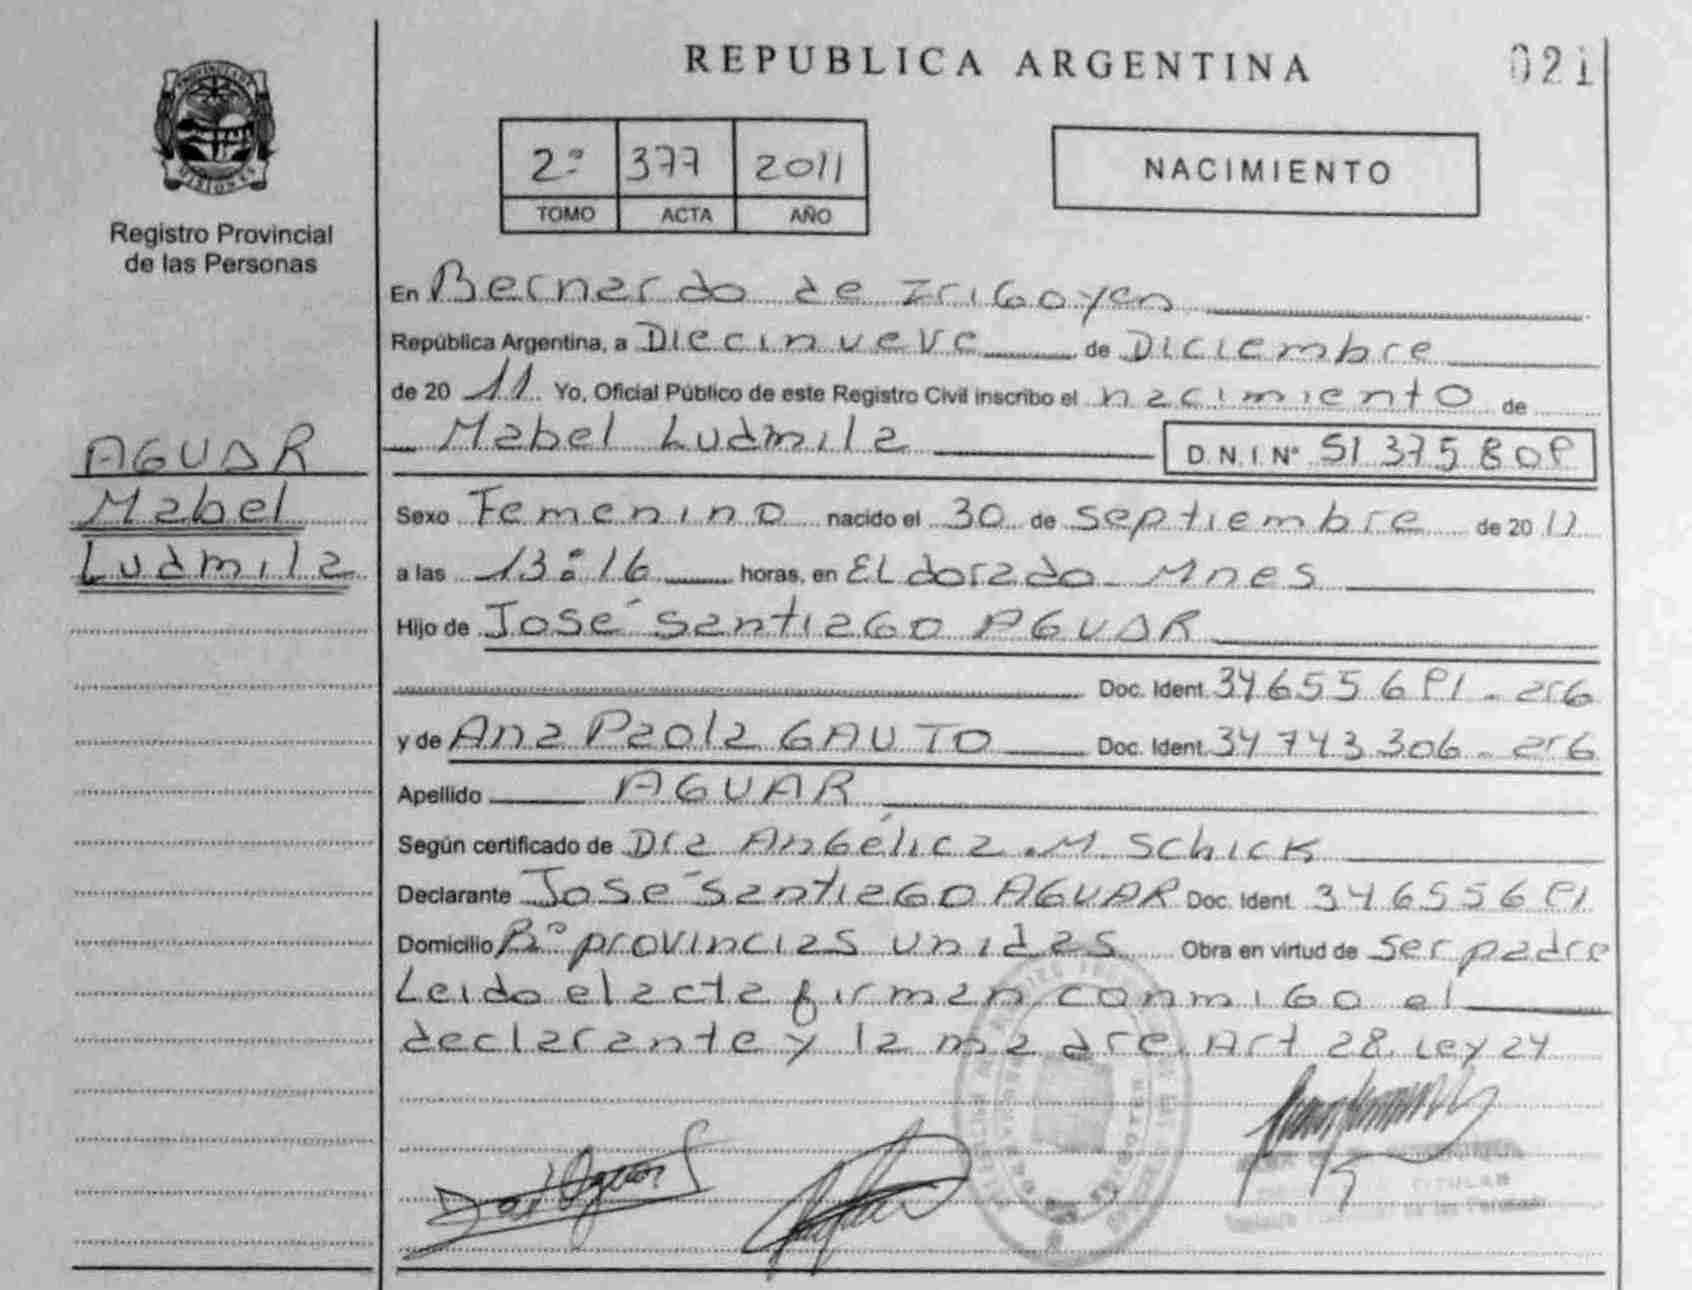 REPUBLICA ARGENTINA
021
PROVINCIA DE
MISIONES
Registro Provincial
de las Personas
2º 377 2011
TOMO ACTA AÑO
NACIMIENTO
AGUAR
Mabel
Ludmila
En Bernardo de Irigoyen
República Argentina, a Diecinueve de Diciembre
de 20 11 Yo, Oficial Público de este Registro Civil inscribo el nacimiento de
Mabel Ludmila D.N.I. Nº 51 375 809
Sexo Femenino nacido el 30 de septiembre de 20 11
a las 13:16 horas, en ELdorado - Mnes
Hijo de José Santiago AGUAR
Doc. Ident. 34 655 691 - arg
y de Ana Paola GAUTO Doc. Ident. 34 743 306 - arg
Apellido AGUAR
Según certificado de Dra Angélica .M. Schick
Declarante José Santiago AGUAR Doc. Ident. 34 655 691
Domicilio Bº provincias unidas Obra en virtud de ser padre
Leido el acta firman conmigo el
declarante y la madre. Art 28. Ley 24
TITULAR
de las Personas